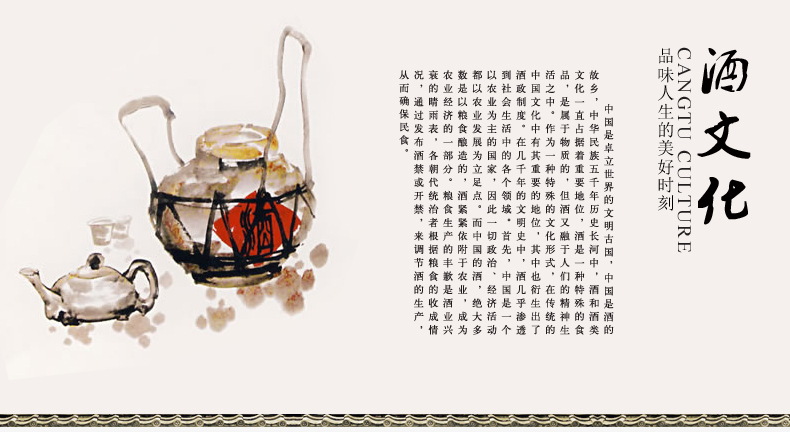 酒文化
CANGTU CULTURE
品味人生的美好时刻
中国是卓立世界的文明古国，中国是酒的
故乡，中华民族五千年历史长河中，酒和酒类
文化一直占据着重要地位，酒是一种特殊的食
品，是属于物质的，但酒又融于人们的精神生
活之中。作为一种特殊的文化形式，在传统的
中国文化中有其重要的地位，其中也衍生出了
酒政制度。在几千年的文明史中，酒几乎渗透
到社会生活中的各个领域。首先，中国是一个
以农业为主的国家，因此一切政治、经济活动
都以农业发展为立足点。而中国的酒，绝大多
数是以粮食酿造的，酒紧紧依附于农业，成为
农业经济的一部分。粮食生产的丰歉是酒业兴
衰的晴雨表，各朝代统治者根据粮食的收成情
况，通过发布酒禁或开禁，来调节酒的生产，
从而确保民食。
酒